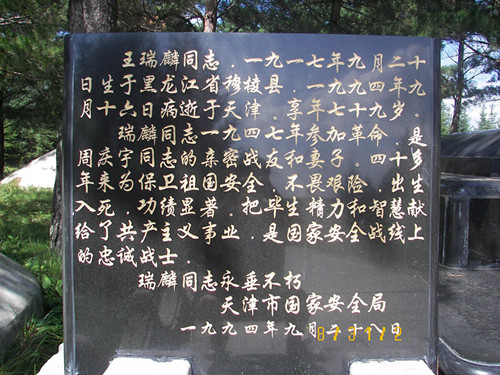 王瑞麟同志，一九一七年九月二十
日生于黑龙江省穆棱县，一九九四年九
月十六日病逝于天津。享年七十九岁。
瑞麟同志一九四七年参加革命，是
周庆宇同志的亲密战友和妻子。四十多
年来为保卫祖国安全，不畏艰险，出生
入死，功绩显著，把毕生精力和智慧献
给了共产主义事业，是国家安全战线上
的忠诚战士。
瑞麟同志永垂不朽
天津市国家安全局
一九九四年九月二十八日